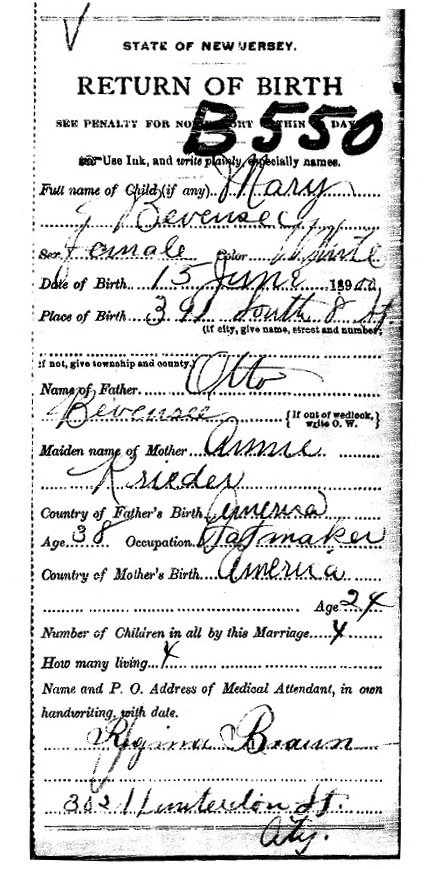 STATE OF NEW JERSEY.
RETURN OF BIRTH
B550
SEE PENALTY FOR NON REPORT WITHIN DAYS
Use Ink, and write plainly, especially names.
Full name of Child (if any) Mary
J Bevensee
Sex Female Color White
Date of Birth 15 June 1890
Place of Birth 391 South 8 St
(If city, give name, street and number;
if not, give township and county.)
Name of Father Otto
Bevensee {If out of wedlock, write O. W.}
Maiden name of Mother Annie
Krieder
Country of Father's Birth America
Age 38 Occupation Hatmaker
Country of Mother's Birth America
Age 24
Number of Children in all by this Marriage 4
How many living 4
Name and P. O. Address of Medical Attendant, in own
handwriting, with date.
Regina Braun
302 Hunterdon St.
City.